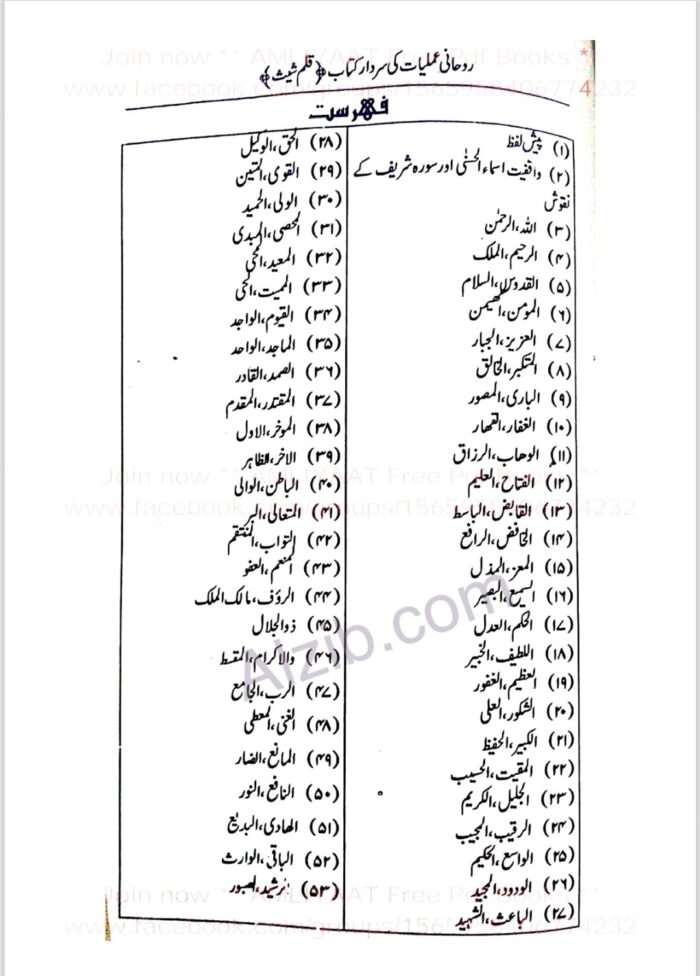 Join now ** AMLIYAAT Free Pdf Books **
www.facebook.com/groups/1565958406774232
روحانی عملیات کی سردار کتاب ﴿قلم شیث﴾
فہرست
(۱) پیش لفظ
(۲) واقفیت اسماء الحسنٰی اور سورہ شریف کے
نقوش
(۳) اللہ، الرحمٰن
(۴) الرحیم، الملک
(۵) القدوس، السلام
(۶) المومن، المھیمن
(۷) العزیز، الجبار
(۸) المتکبر، الخالق
(۹) الباری، المصور
(۱۰) الغفار، القھار
(۱۱) الوھاب، الرزاق
(۱۲) الفتاح، العلیم
(۱۳) القابض، الباسط
(۱۴) الخافض، الرافع
(۱۵) المعز، المذل
(۱۶) السمیع، البصیر
(۱۷) الحکم، العدل
(۱۸) اللطیف، الخبیر
(۱۹) العظیم، الغفور
(۲۰) الشکور، العلی
(۲۱) الکبیر، الحفیظ
(۲۲) المقیت، الحسیب
(۲۳) الجلیل، الکریم
(۲۴) الرقیب، المجیب
(۲۵) الواسع، الحکیم
(۲۶) الودود، المجید
(۲۷) الباعث، الشھید
(۲۸) الحق، الوکیل
(۲۹) القوی، المتین
(۳۰) الولی، الحمید
(۳۱) المحصی، المبدی
(۳۲) المعید، المحی
(۳۳) الممیت، الحی
(۳۴) القیوم، الواجد
(۳۵) الماجد، الواحد
(۳۶) الصمد، القادر
(۳۷) المقتدر، المقدم
(۳۸) الموخر، الاول
(۳۹) الاخر، الظاہر
(۴۰) الباطن، الوالی
(۴۱) المتعالی، البر
(۴۲) التواب، المنتقم
(۴۳) المنعم، العفو
(۴۴) الرؤف، مالک الملک
(۴۵) ذوالجلال
(۴۶) والاکرام، المقسط
(۴۷) الرب، الجامع
(۴۸) الغنی، المعطی
(۴۹) المانع، الضار
(۵۰) النافع، النور
(۵۱) الھادی، البدیع
(۵۲) الباقی، الوارث
(۵۳) الرشید، الصبور
Join now ** AMLIYAAT Free Pdf Books **
www.facebook.com/groups/1565958406774232
Aizib.com
Join now ** AMLIYAAT Free Pdf Books **
www.facebook.com/groups/1565958406774232